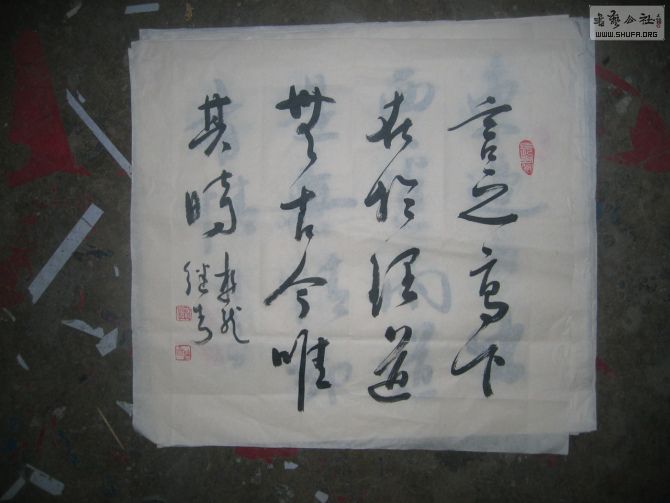 言之高下
在於理道
無古今唯
其時
書藝公社
WWW.SHUFA.ORG